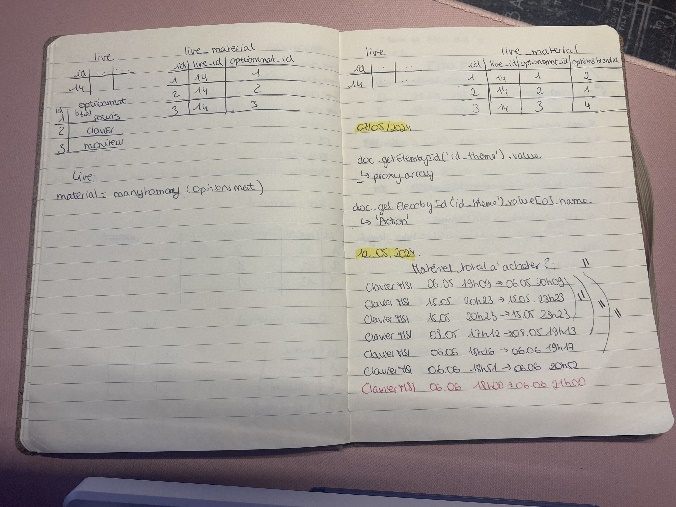 live
id
14
live_material
id live_id optionmat_id
1 14 1
2 14 2
3 14 3
id optionmat
1 souris
2 clavier
3 moniteur
Live
material = manytomany (optionsmat)
live
id
14
live_material
id live_id optionmat_id
1 14 1 2
2 14 2 1
3 14 3 4
doc.getElembyId('id_theme').value
↳ proxy array
doc.getElembyId('id_theme').value[0].name
↳ 'Action'
10.05.2024
Matériel total à acheter ?
Clavier MSI 06.05 19h09 → 06.05 20h09
Clavier MSI 15.05 20h23 → 15.05 23h23
Clavier MSI 15.05 20h23 → 15.05 23h23
Clavier MSI 17h12 → 19h13
Clavier MSI 06.06 → 06.06 19h17
Clavier MSI 06.06 18h51 → 06.06 20h02
Clavier MSI 06.06 18h00 → 06.06 21h00